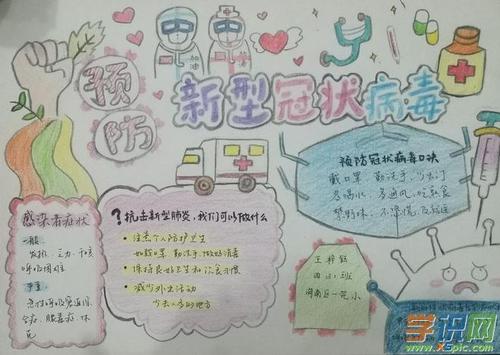 加油
预
防
新型冠状病毒
预防冠状病毒口诀
戴口罩 勤洗手 少出门
多喝水 多通风 吃熟食
禁野味 不恐慌
感染者症状
一般
发热、乏力、干咳
呼吸困难
严重
急性呼吸窘迫
休
克
?抗击新型肺炎,我们可以做什么
注意个人防护卫生
如戴口罩 勤洗手 做好消毒
保持良好卫生和饮食习惯
减少外出活动
少去人多的地方
王梓
四(2)班
一苑小
学识网
www.XSpic.com